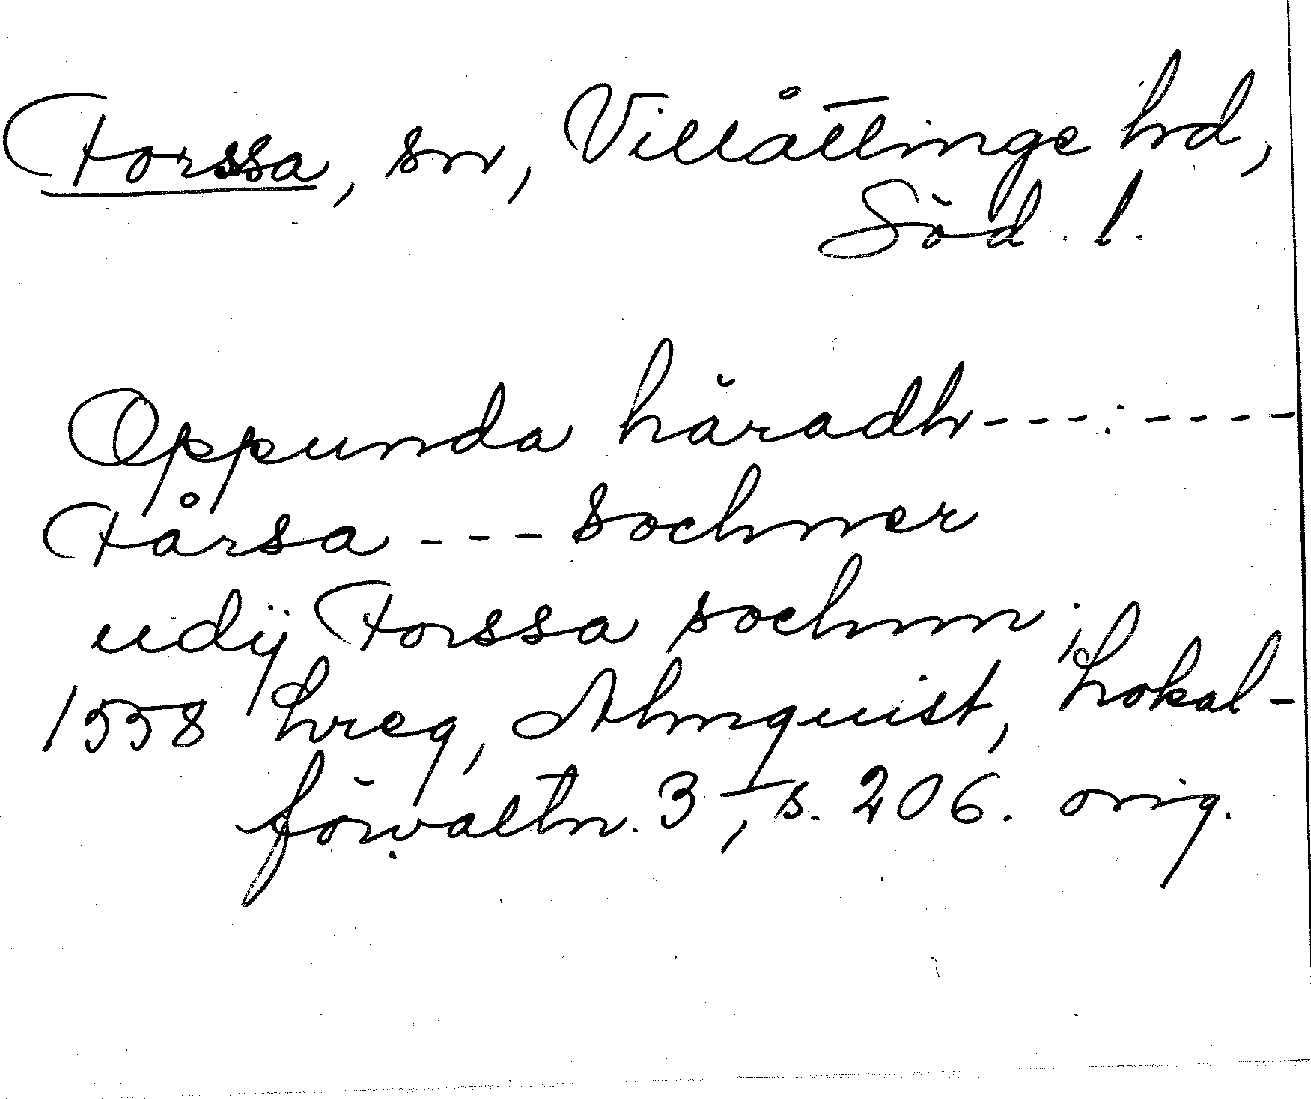 Forssa, sn, Villåttinge hd,
Söd. l.
Oppunda häradh---:----
Fårsa --- sochner
udij Forssa sochnn.
1558 Lreg, Almquist, Lokal-
förvaltn. 3, s. 206. orig.